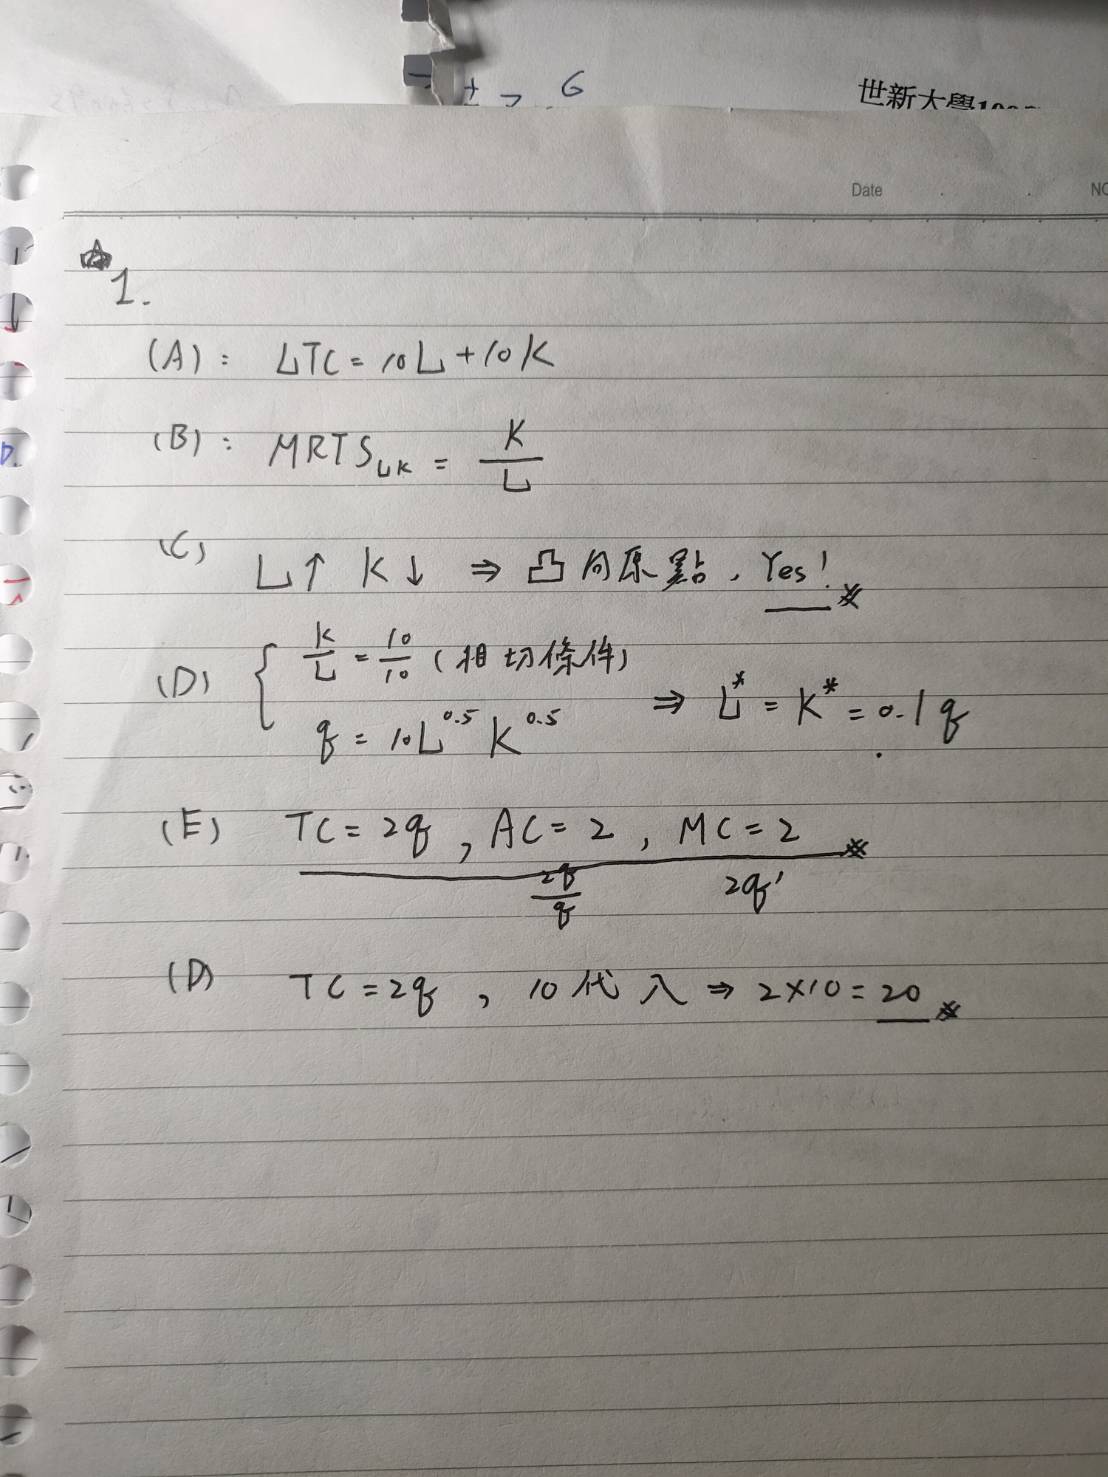 6
世新大學
Date
1.
(A): LTC = 10L + 10K
(B): MRTS_LK = K/L
(C) L↑ K↓ ⇒ 凸向原點, Yes!
(D) { K/L = 10/10 (相切條件)
q = 10L^0.5 K^0.5 ⇒ L* = K* = 0.1q
(E) TC = 2q, AC = 2, MC = 2
2q/q 2q'
(D) TC = 2q, 10代入 ⇒ 2×10 = 20